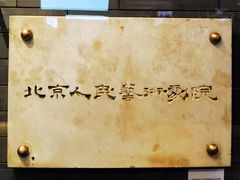 北京人民藝術劇院